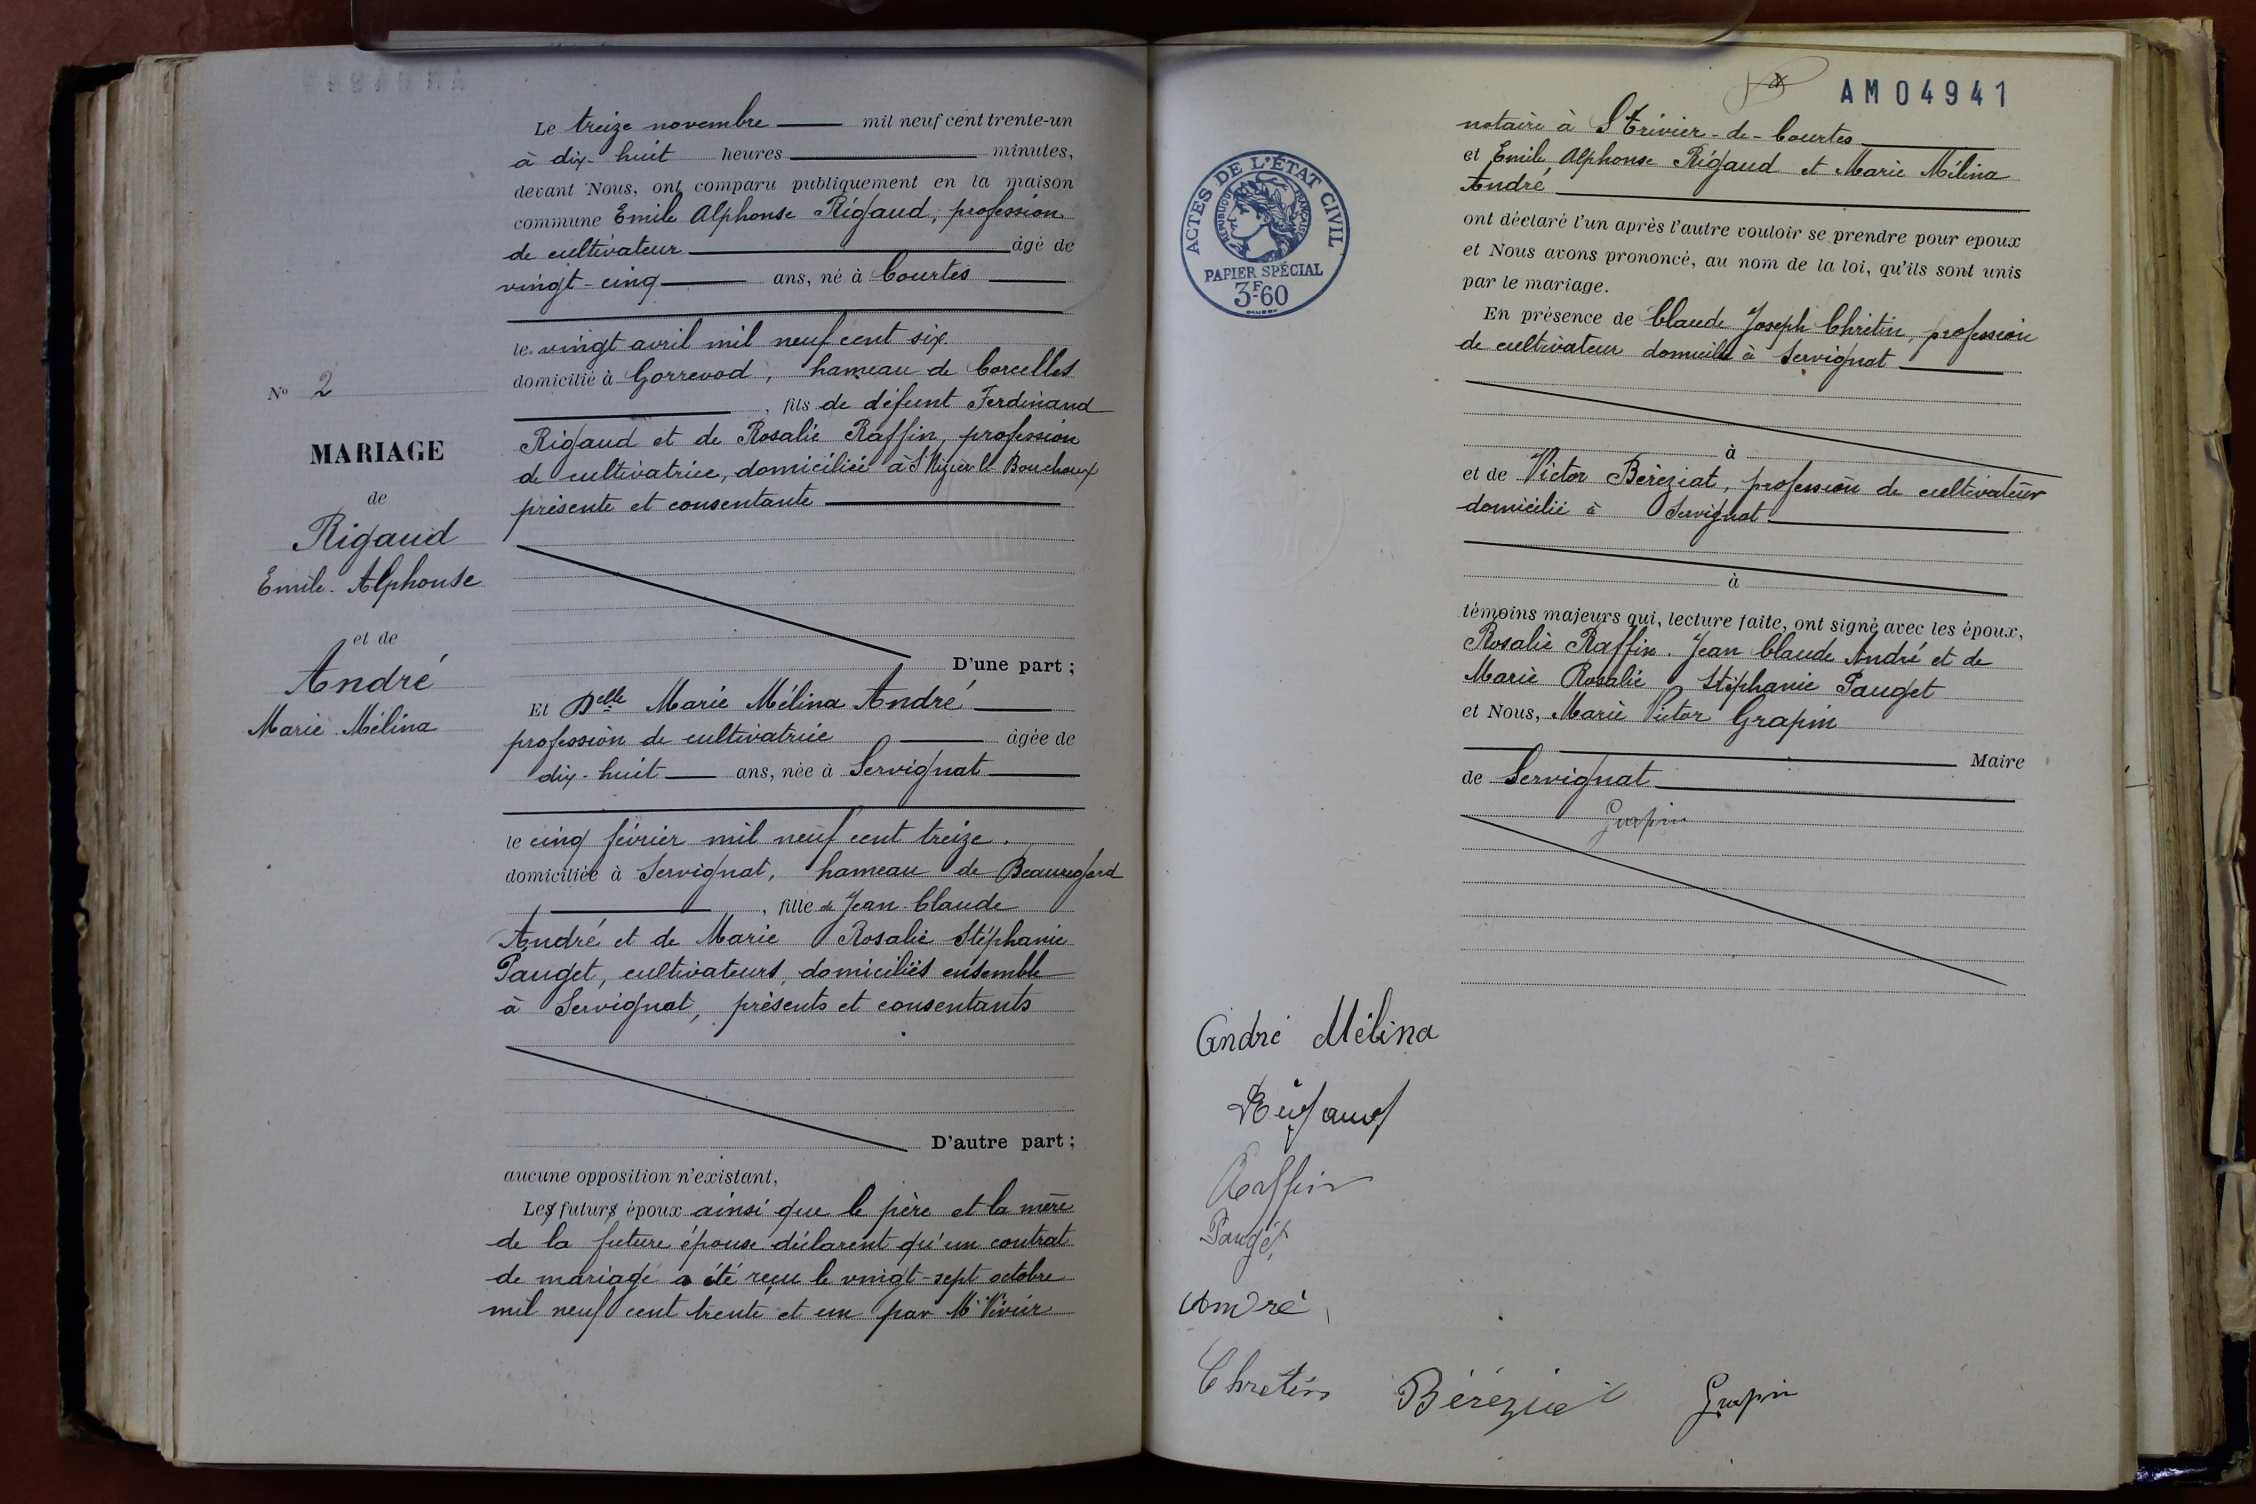 Le treize novembre mil neuf cent trente-un
à dix-huit heures minutes,
devant Nous, ont comparu publiquement en la maison
commune Emile Alphonse Rigaud, profession
de cultivateur âgé de
vingt-cinq ans, né à Courtes
le vingt avril mil neuf cent six
domicilié à Gorrevod, hameau de Corcelles
, fils de défunt Ferdinand
Rigaud et de Rosalie Raffin, profession
de cultivatrice, domiciliée à St Nizier le Bouchoux
présente et consentante
D'une part ;
Et Delle Marie Mélina André
profession de cultivatrice âgée de
dix-huit ans, née à Servignat
le cinq février mil neuf cent treize.
domiciliée à Servignat, hameau de Beauregard
, fille de Jean-Claude
André et de Marie Rosalie Stéphanie
Pauget, cultivateurs, domiciliés ensemble
à Servignat, présents et consentants
D'autre part ;
aucune opposition n'existant,
Les futurs époux ainsi que le père et la mère
de la future épouse déclarent qu'un contrat
de mariage a été reçu le vingt-sept octobre
mil neuf cent trente et un par Me Vivier
No 2
MARIAGE
de
Rigaud
Emile-Alphonse
et de
André
Marie-Mélina
AM04941
notaire à St Trivier-de-Courtes
et Emile Alphonse Rigaud et Marie Mélina
André
ont déclaré l'un après l'autre vouloir se prendre pour époux
et Nous avons prononcé, au nom de la loi, qu'ils sont unis
par le mariage.
En présence de Claude Joseph Chrétin, profession
de cultivateur domicilié à Servignat
à
et de Victor Béréziat, profession de cultivateur
domicilié à Servignat
à
témoins majeurs qui, lecture faite, ont signé avec les époux,
Rosalie Raffin. Jean Claude André et de
Marie Rosalie Stéphanie Pauget
et Nous, Marie Victor Grapin
Maire
de Servignat
Grapin
ACTES DE L'ÉTAT CIVIL
RÉPUBLIQUE FRANÇAISE
PAPIER SPÉCIAL
3F60
André Mélina
Rigaud
Raffin
Pauget
André
Chrétin Béréziat Grapin